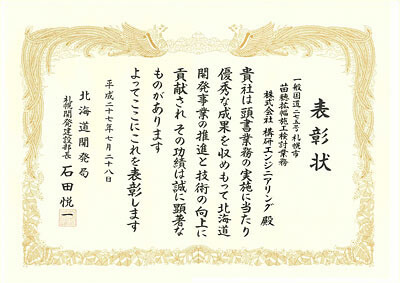 表彰状
一般国道二七五号札幌市
苗穂拡幅施工検討業務
株式会社 構研エンジニアリング 殿
貴社は頭書業務の実施に当たり
優秀な成果を収めもって北海道
開発事業の推進と技術の向上に
貢献され その功績は誠に顕著な
ものがあります
よってここにこれを表彰します
平成二十七年七月二十八日
北海道開発局
札幌開発建設部長 石田悦一